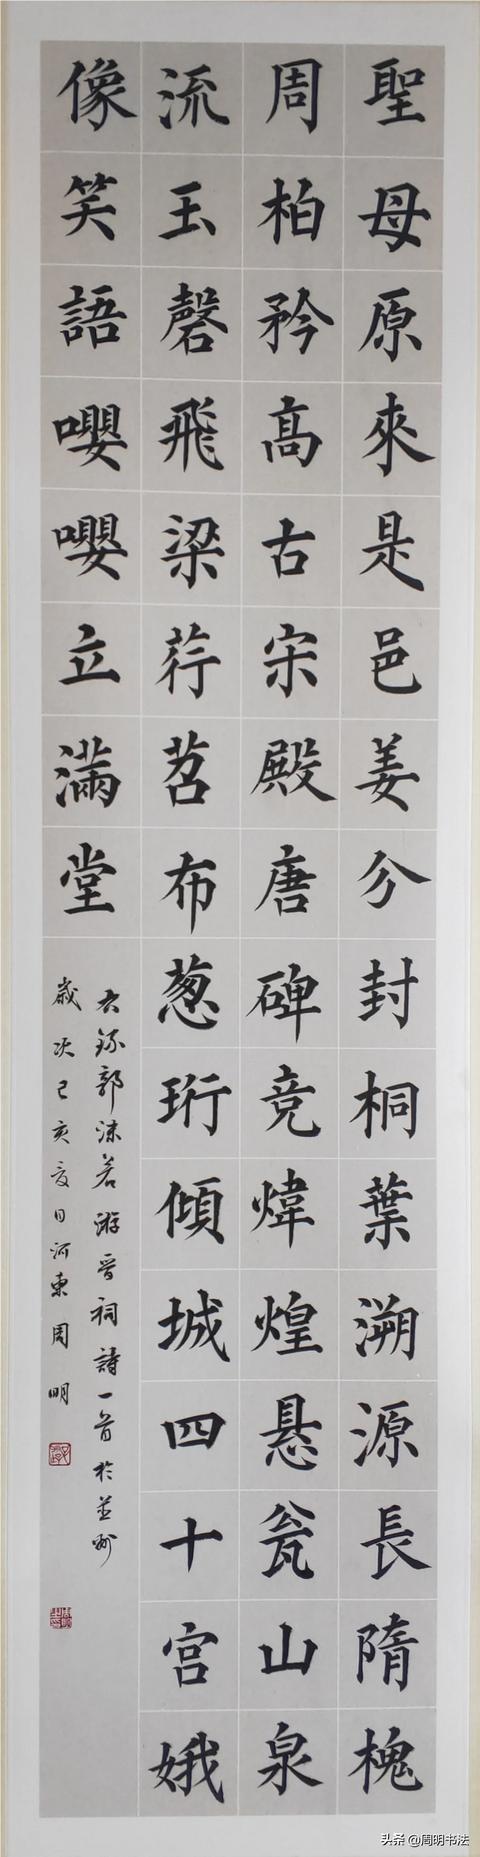 聖母原來是邑姜分封桐葉溯源長隋槐
周柏矜高古宋殿唐碑竞煒煌悬瓮山泉
流玉磬飛梁荇苕布葱珩傾城四十宫娥
像笑語嚶嚶立滿堂
右錄郭沫若游晋祠詩一首於並州
歲次己亥夏日河東周明
头条 @周明书法